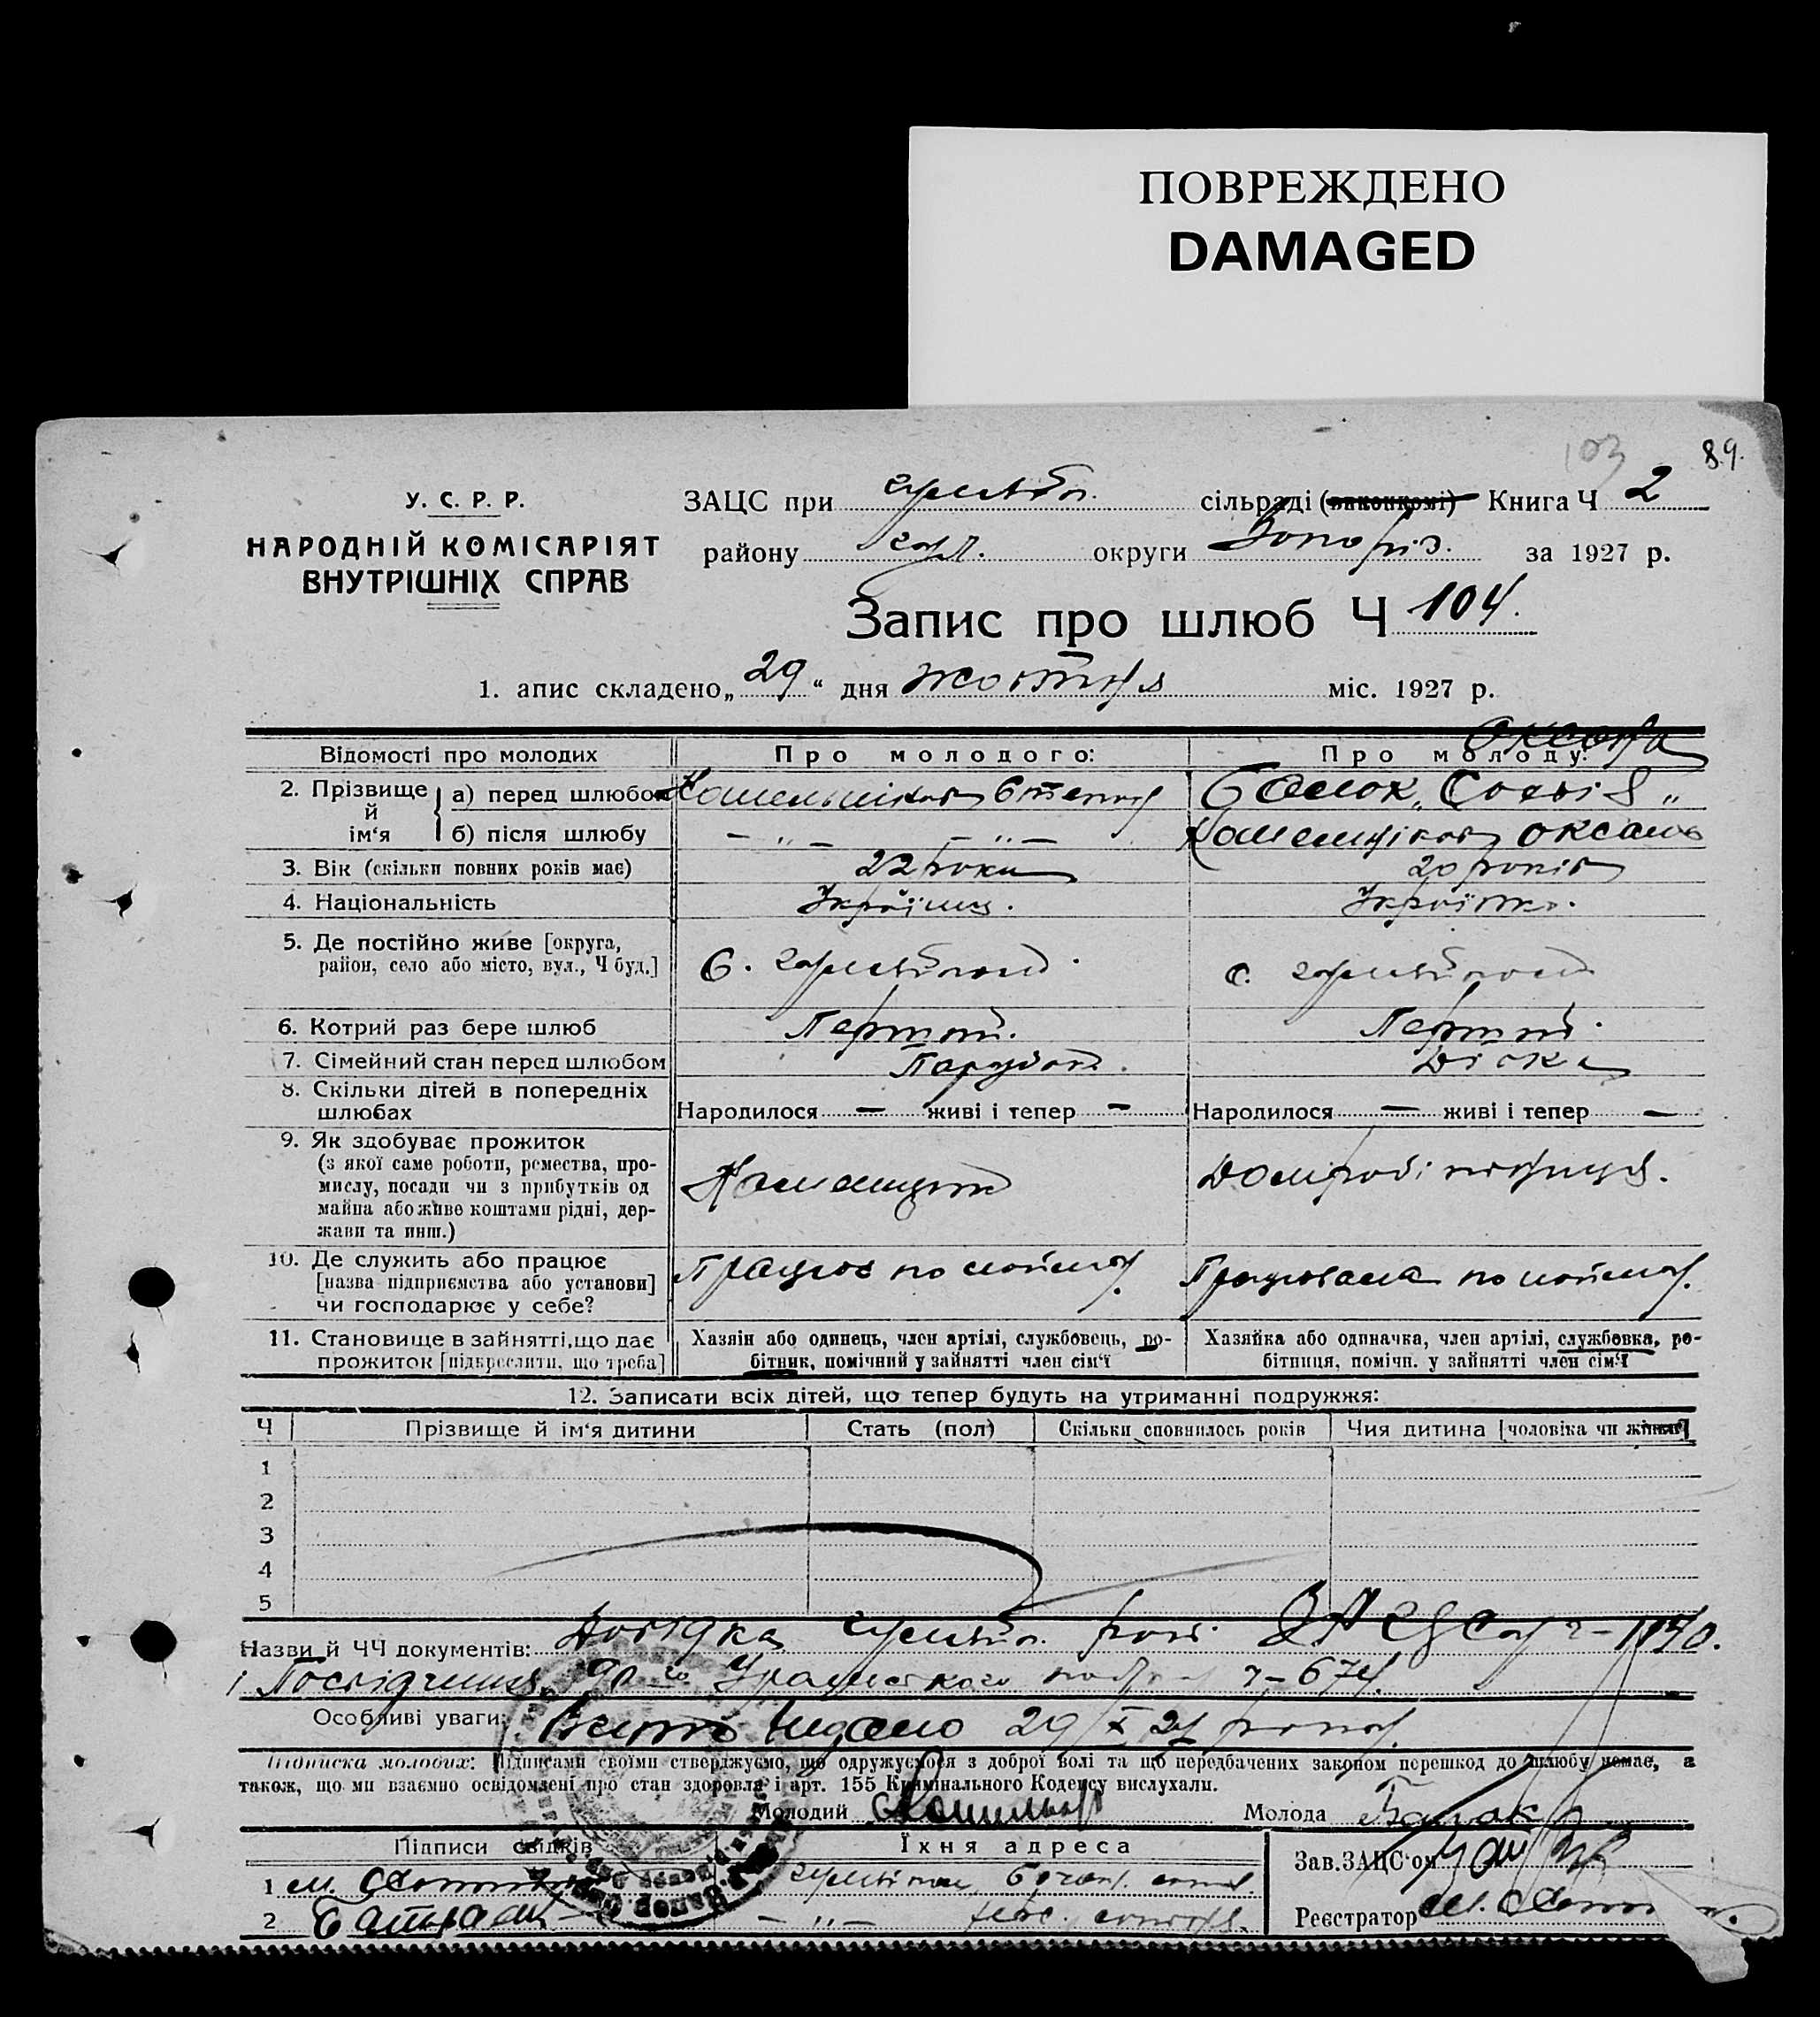 ПОВРЕЖДЕНО
DAMAGED
103 89.
У. С. Р. Р.
НАРОДНІЙ КОМІСАРІЯТ
ВНУТРІШНІХ СПРАВ
ЗАЦС при сільраді (виконкомі) Книга Ч 2
району округи Запоріз. за 1927 р.
Запис про шлюб Ч 104.
1. апис складено „29“ дня жовтня міс. 1927 р.
Оксана
Відомості про молодих Про молодого: Про молоду:
2. Прізвище й ім‘я
а) перед шлюбом Балок „Софія„
б) після шлюбу – „ – – „ – Оксана
3. Вік (скільки повних років має) 22 роки 20 років
4. Національність Українец. Українка.
5. Де постійно живе [округа,
район, село або місто, вул., Ч буд.] С. с.
6. Котрий раз бере шлюб Перший. Перший.
7. Сімейний стан перед шлюбом Парубок. Дівка
8. Скільки дітей в попередніх
шлюбах Народилося — живі і тепер — Народилося — живі і тепер —
9. Як здобуває прожиток
(з якої саме роботи, ремества, про-
мислу, посади чи з прибутків од
майна або живе коштами рідні, дер-
жави та инш.)
10. Де служить або працює
[назва підприємства або установи]
чи господарює у себе? Працює по найму. Працювала по найму.
11. Становище в зайнятті, що дає
прожиток [підкреслити, що треба]
Хазяїн або одинець, член артілі, службовець, ро-
бітник, помічний у зайнятті член сім‘ї
Хазяйка або одиначка, член артілі, службовка, ро-
бітниця, помічн. у зайнятті член сім‘ї
12. Записати всіх дітей, що тепер будуть на утриманні подружжя:
Ч Прізвище й ім‘я дитини Стать (пол) Скільки сповнилось років Чия дитина [чоловіка чи жінки]
1
2
3
4
5
Назви й ЧЧ документів: Довідка рай. ЗАЦСу ч–1140.
і Посвідчення ч–674.
Особливі уваги: Витяг видано 29/X 27 року.
Підписка молодих: Підписами своїми стверджуємо, що одружуємося з доброї волі та що передбачених законом перешкод до шлюбу немає, а
також, що ми взаємно освідомлені про стан здоровля і арт. 155 Кримінального Кодексу вислухали.
Молодий Молода
Підписи свідків Їхня адреса
Зав. ЗАЦС‘ом
1
2 – „ –
Реєстратор